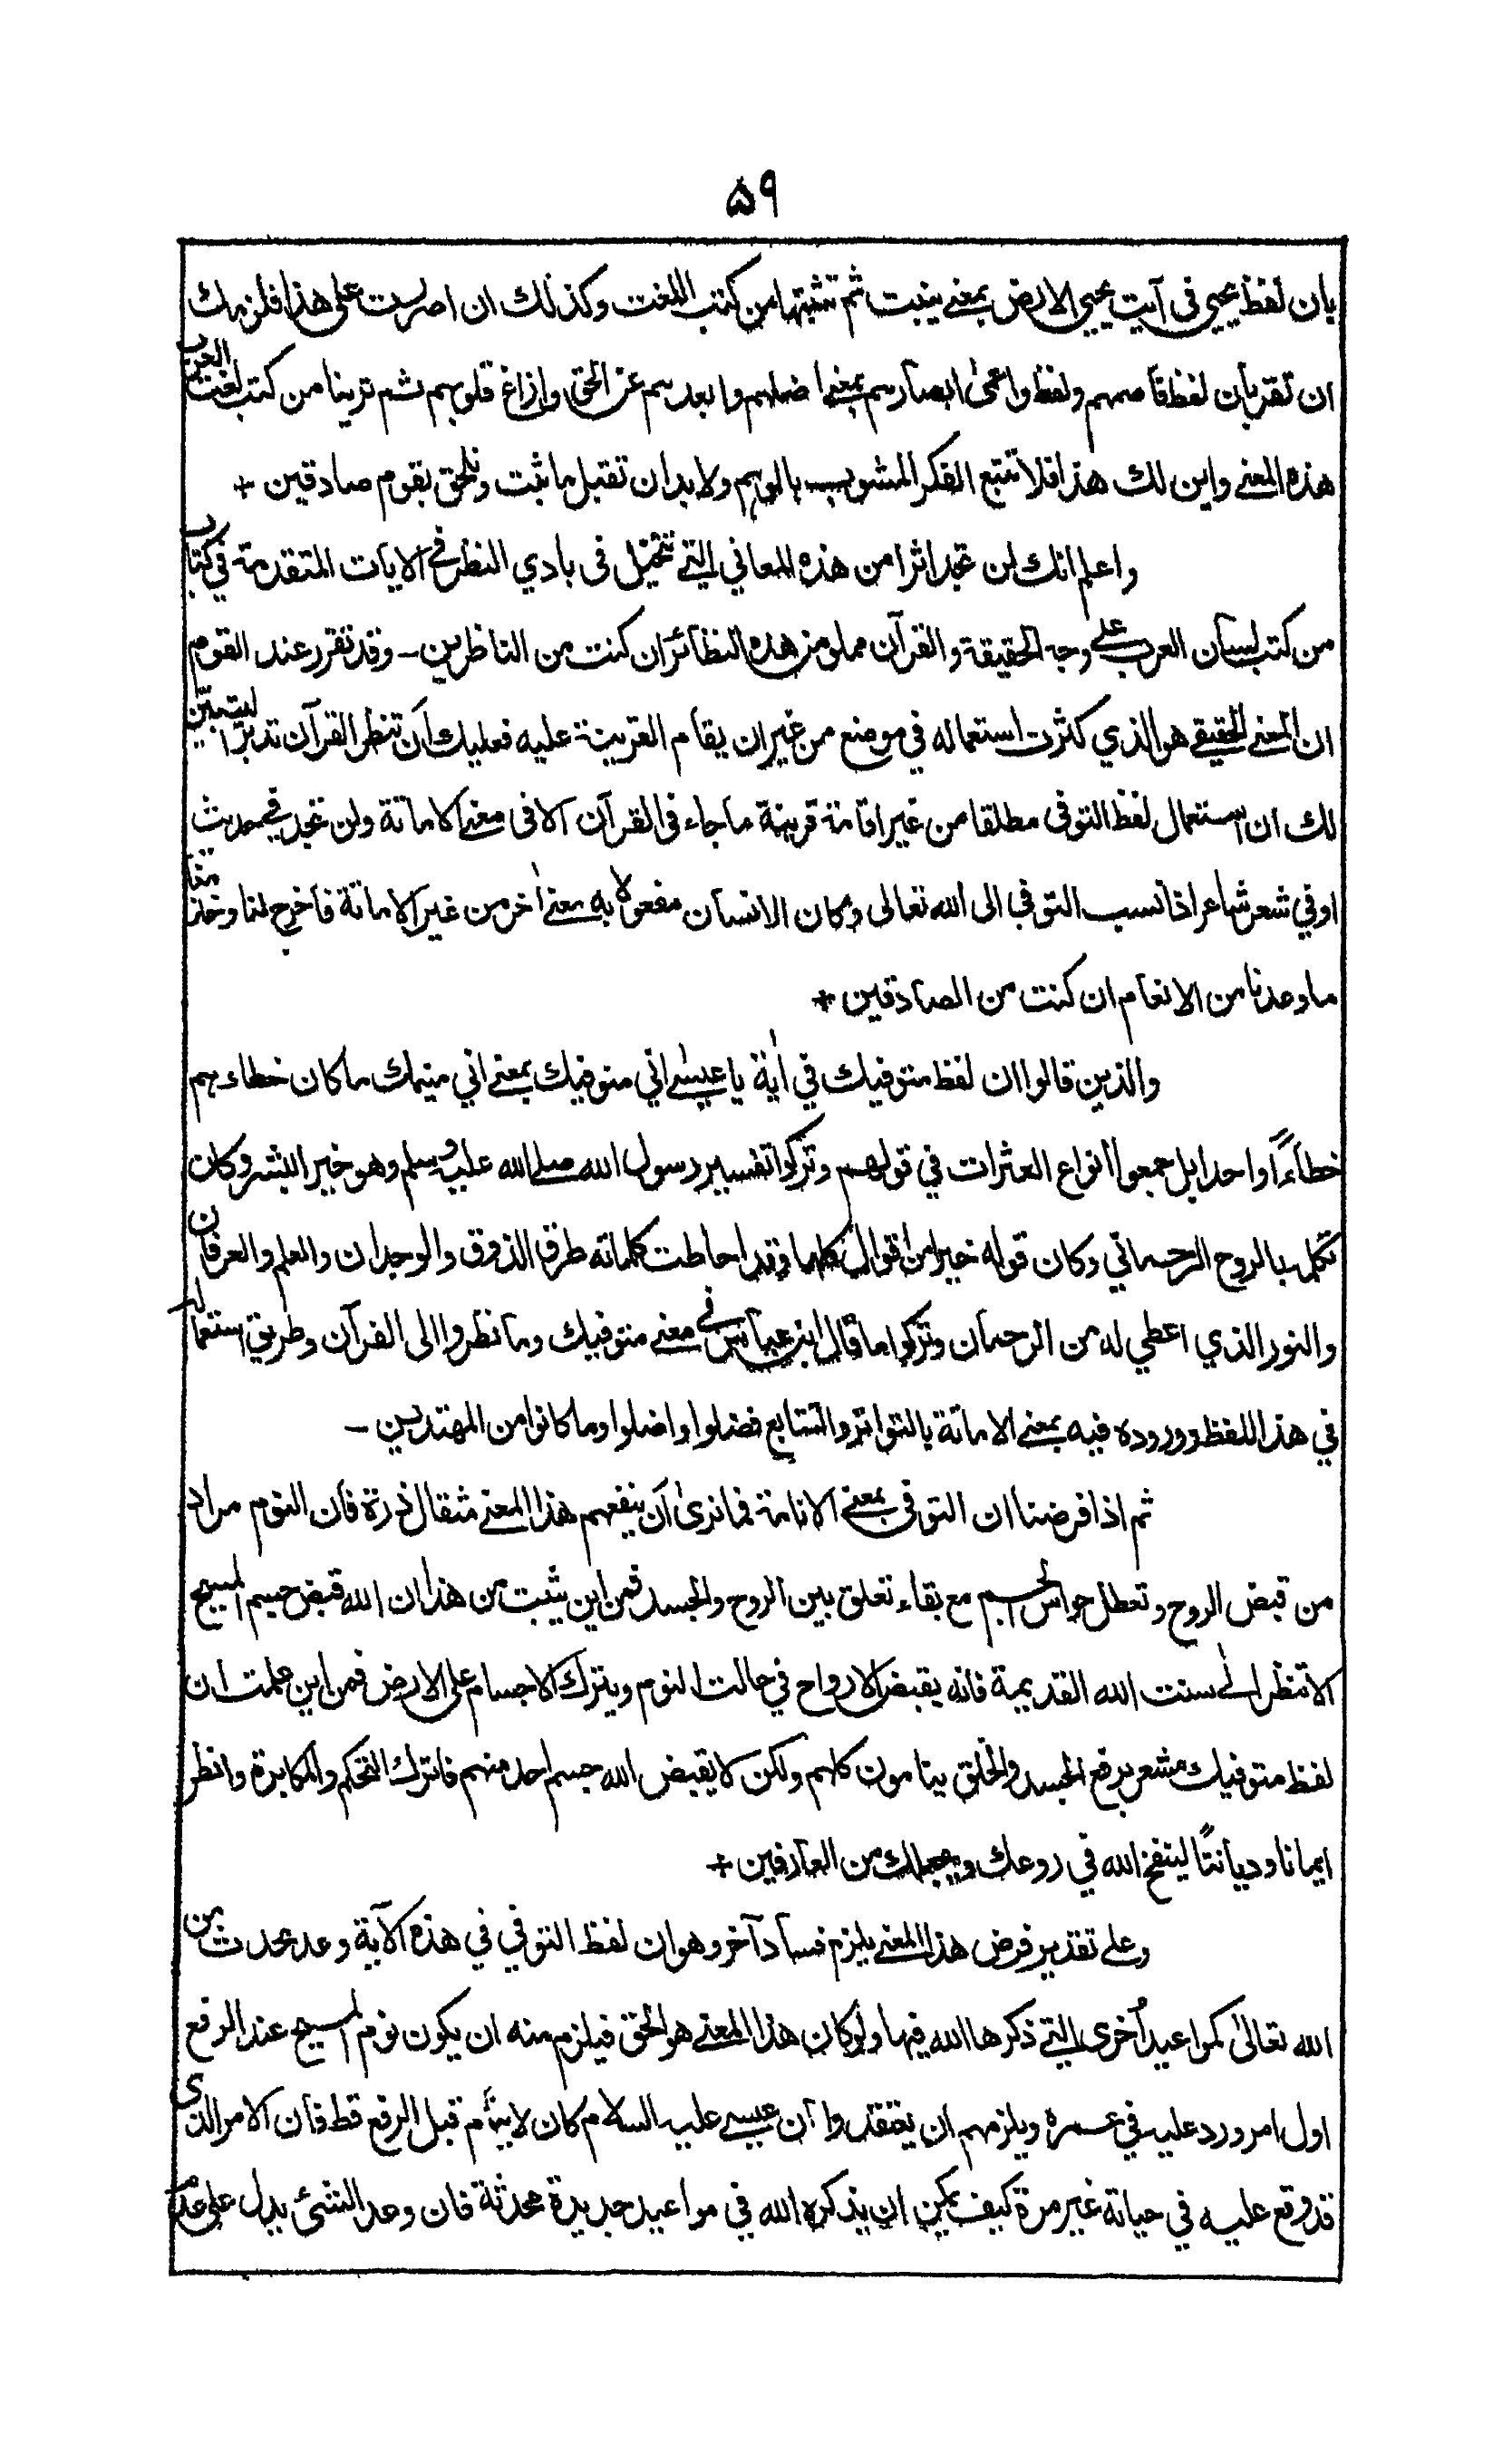 ۵۹
بان لفظ يحيى فى آيت يحيى الارض بمعنے ينبت ثم تثبتها من كتب اللغت وكذلك ان اصررت على هذا فلزمك
ان تقر بان لفظ فاصمهم ولفظ واعمىٰ ابصارهم بمعنے اضلهم وابعدهم عن الحق وازاغ قلوبهم ثم ترينا من كتب لغت العرب
هذه المعنے واين لك هذا فلا تتبع الفكر المشوب بالوهم ولا بد ان تقبل ما ثبت وتلحق بقوم صادقين +
واعلم انك لن تجد اثرا من هذه المعاني التے تتخيل فى بادي النظر فے الايات المتقدمة في كتاب
من كتب لسان العرب علے وجه الحقيقة والقرآن مملو من هذه النظائر ان كنت من الناظرين - وقد تقرر عند القوم
ان المعنے الحقيقے هو الذي كثرت استعماله في موضع من غير ان يقام القرينة عليه فعليك ان تنظر القرآن تدبرًا ليتبين
لك ان استعمال لفظ التوفى مطلقا من غير اقامة قرينة ما جاء فى القرآن الا فى معنے الاماتة ولن تجد فے حديث
او في شعر شاعر اذا نسب التوفي الى الله تعالى وكان الانسان مفعولا به معنے اٰخر من غير الاماتة فاخرج لنا وخذ منا
ما وعدنا من الانعام ان كنت من الصادقين +
والذين قالوا ان لفظ متوفيك في اٰية يا عيسےٰ اني متوفيك بمعنے اني منيمك ما كان خطاءهم
خطاءً واحدا بل جمعوا انواع العثرات في قولهم وتركوا تفسير رسول الله صلے الله عليه وسلم وهو خير البشر وكان
تكلم بالروح الرحماني وكان قوله خيرا من اقوال كلها وقد احاطت كلماته طرق الذوق والوجدان والعلم والعرفان
والنور الذي اعطي له من الرحمان وتركوا ما قال ابن عباس فے معنے متوفيك وما نظروا الى القرآن وطريق استعماله
في هذا اللفظ ووروده فيه بمعنے الاماتة بالتواتر والتتابع فضلوا واضلوا وما كانوا من المهتدين -
ثم اذا فرضنا ان التوفى بمعنے الانامة فما نرىٰ ان ينفعهم هذا المعنے مثقال ذرة فان النوم مراد
من قبض الروح وتعطل حواس الجسم مع بقاء تعلق بين الروح والجسد فمن اين يثبت من هذا ان الله قبض جسم المسيح
الا تنظر الےٰ سنت الله القديمة فانه يقبض الارواح في حالت النوم ويترك الاجسام على الارض فمن اين علمت ان
لفظ متوفيك مشعر برفع الجسد والخلق ينامون كلهم ولكن لا يقبض الله جسم احد منهم فاترك التحكم والمكابرة وانظر
ايمانا وديانتًا لينفخ الله في روعك ويجعلك من العارفين +
وعلے تقدير فرض هذا المعنے يلزم فساد آخر وهو ان لفظ التوفي في هذه الآية وعد محدث من
الله تعالىٰ كمواعيد اُخرى التے ذكرها الله فيها ولو كان هذا المعنے هو الحق فيلزم منه ان يكون نوم المسيح عند الرفع
اول امر ورد عليه في عمره ويلزمهم ان يعتقدوا ان عيسے عليه السلام كان لا ينام قبل الرفع قط فان الامر الذي
قد وقع عليه في حياته غير مرة كيف يمكن ان يذكره الله في مواعيد جديدة محدثة فان وعد الشئ يدل على عدم